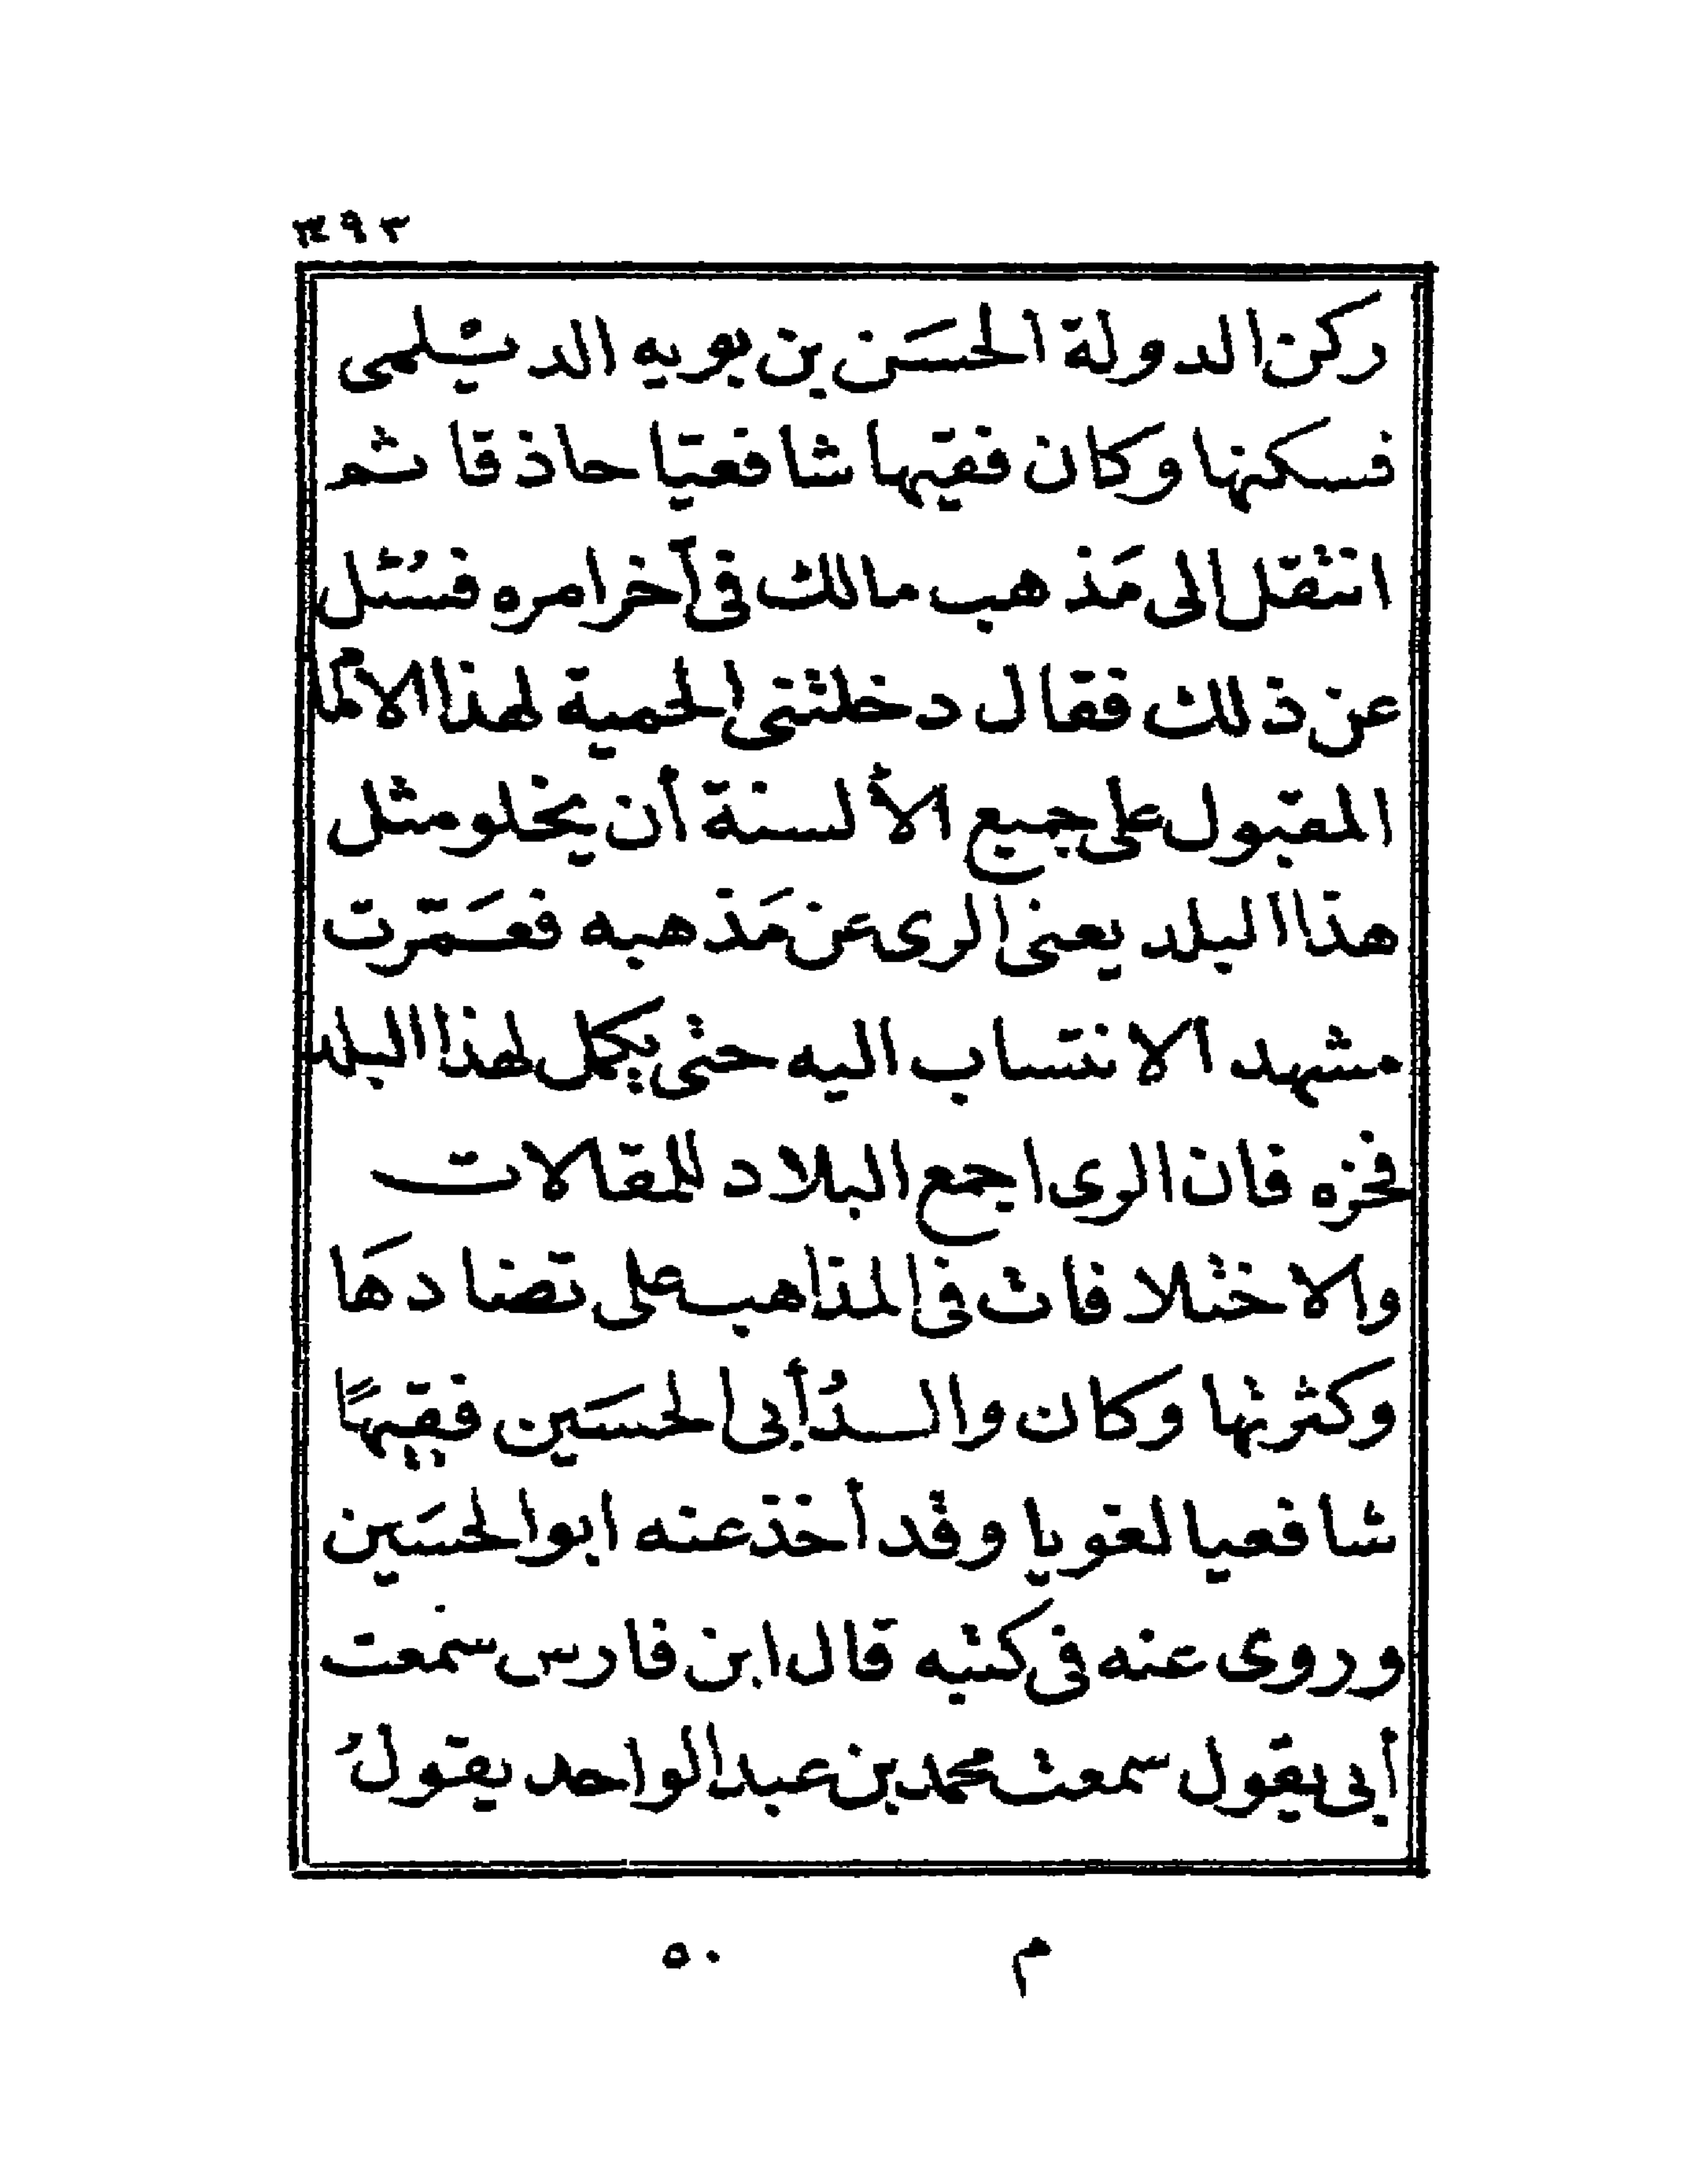 ركن الدولة الحسَن بن بويه الديْلمى
فسكنها وكان فقيها شافعيّا حاذقا ثم
انتقل إلى مَذهب مالك فى آخر امره فسُئل
عن ذلك فقال دخلتنى الحمية لهذا الامام
المقبول على جميع الألسنة أن يخلو مثل
هذا البلد يعنى الرى عن مَذهبه فعَمّرت
مشهد الانتساب اليه حتى يكمل لهذا البلد
فخره فان الرى اجمع البلاد للمقالات
والاختلافات فى المذاهب على تضادهَا
وكثرتها وكان والدُ أبى الحسَين فقيهًا
شافعيا لغويا وقد أخذ عنه ابو الحسَين
وروى عنه فى كتبه قال ابن فارس سمعت
أبى يقول سمعت محمد بن عبد الواحد يقولُ
م ٥٠